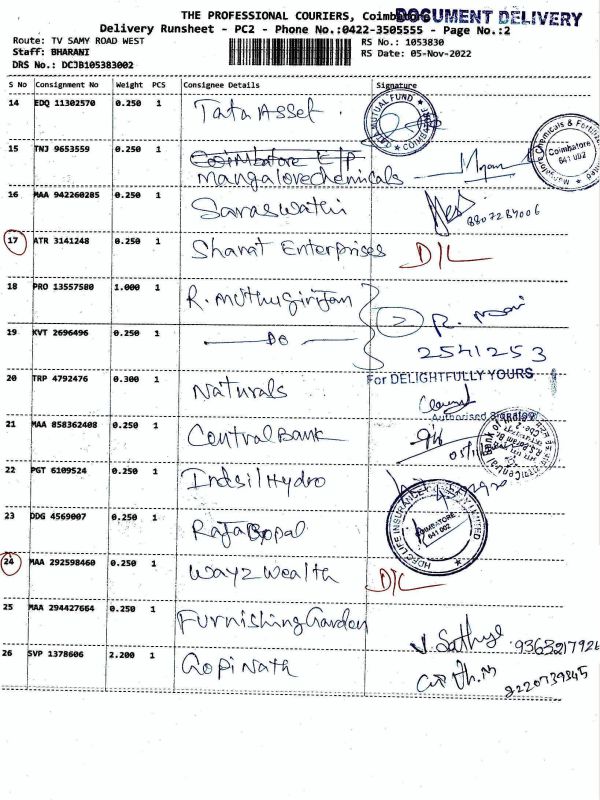 THE PROFESSIONAL COURIERS, Coimbatore
DOCUMENT DELIVERY
Delivery Runsheet - PC2 - Phone No.:0422-3505555 - Page No.:2
Route: TV SAMY ROAD WEST
RS No.: 1053830
Staff: BHARANI
RS Date: 05-Nov-2022
DRS No.: DCJB105383002
S No Consignment No Weight PCS Consignee Details Signature
14 EDQ 11302570 0.250 1 Tata Asset
MUTUAL FUND
15 TNJ 9653559 0.250 1 Coimbatore E/P
Mangalorechemicals
Mangalore Chemicals & Fertili
Coimbatore
641 002
16 MAA 942260285 0.250 1 Saraswathi
8807284006
17 ATR 3141248 0.250 1 Sharat Enterprises D/L
18 PRO 13557580 1.000 1 R. Muthugirijan
2 R. mani
19 KVT 2696496 0.250 1 Do
2541253
For DELIGHTFULLY YOURS
20 TRP 4792476 0.300 1 Naturals
Authorised Signatory
21 MAA 858362408 0.250 1 Central Bank
22 PGT 6109524 0.250 1 Indsil Hydro
HDFC LIFE INSURANCE
LIMITED
COIMBATORE
641 002
23 DDG 4569007 0.250 1 RajaGopal
24 MAA 292598460 0.250 1 Wayz Wealth D/L
25 MAA 294427664 0.250 1 Furnishing Garden
V. Sathya
26 SVP 1378606 2.200 1 Gopi Nath
9220739345